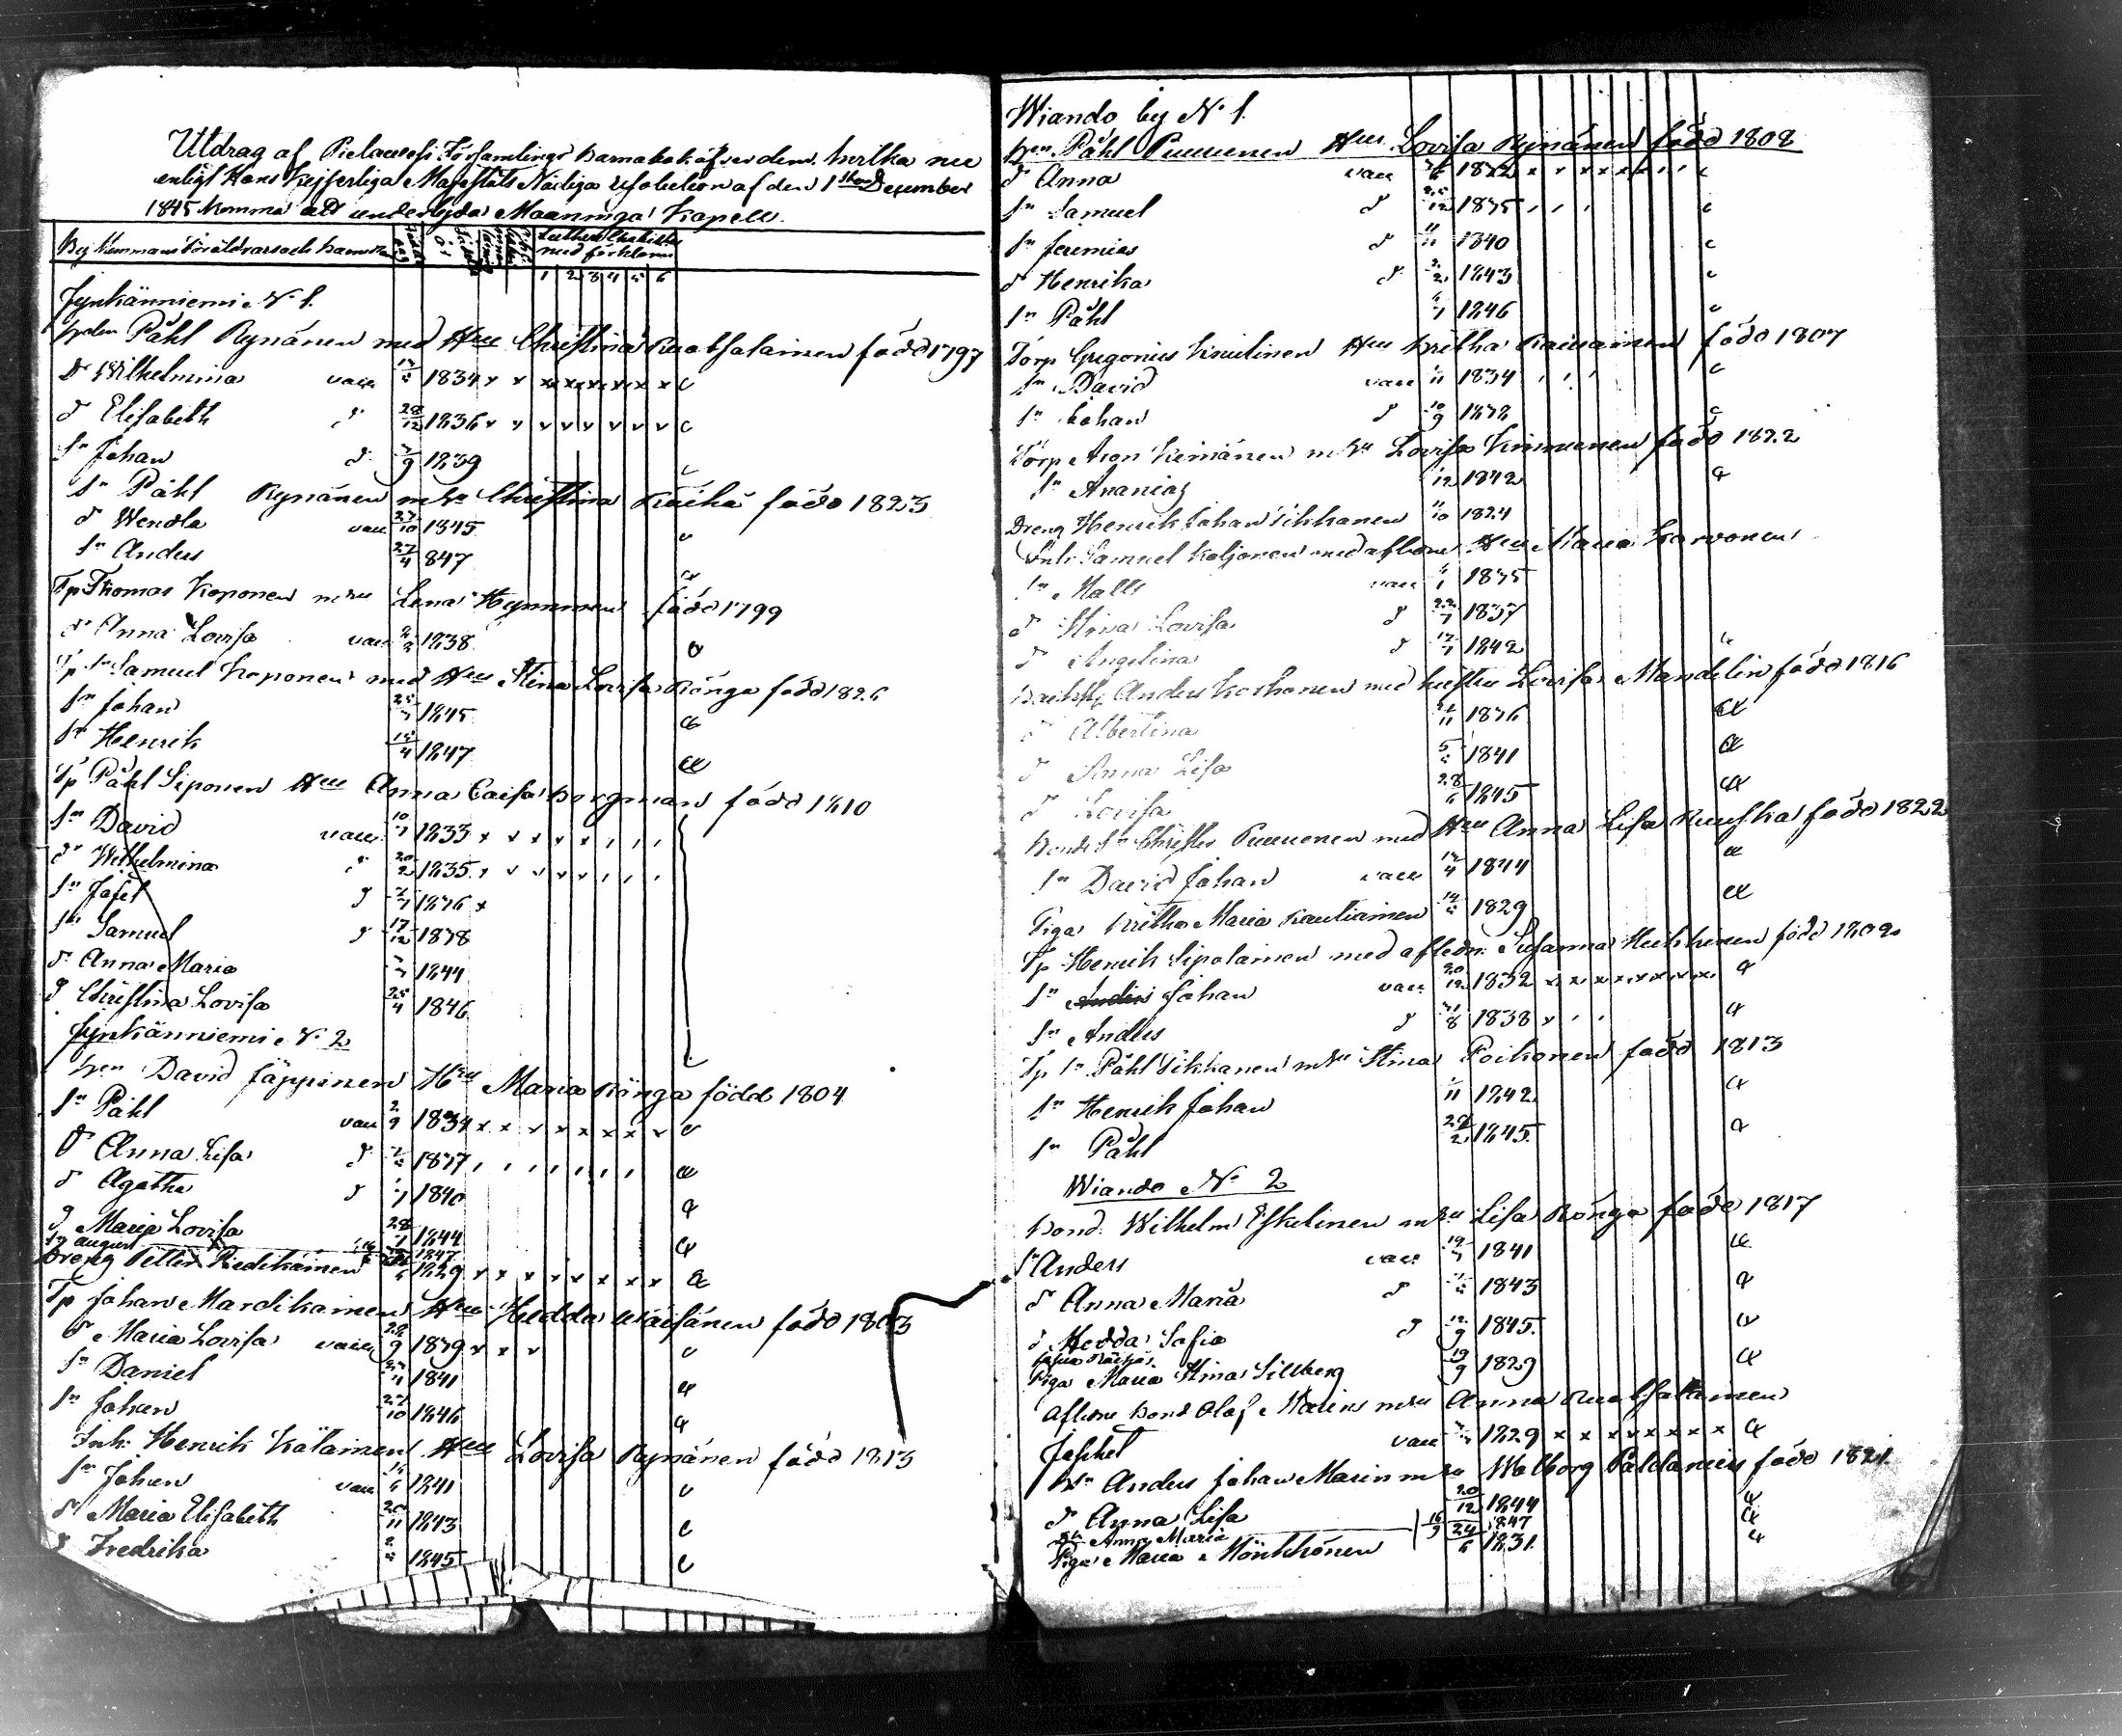 Utdrag af Pielavesi Församlings Barnabok öfver dem, hvilka nu
enligt Hans Kejserliga Majestäts Nådiga resolution af den 1sta December
1845 komma att underlyda Maaninga Kapell.
By Hemmans Föräldrars och barns
Luthers Cateches
med förklaring
1 2 3 4 5 6
Jynkänniemi N 1.
Påhl Rynänen med Hu Christina Ruotsalainen född 1797
Dr Wilhelmina vacc 1834 x x x x x x x x x c
d Elisabeth d 28/12 1836 v v v v v v v v c
Sn Johan d 9 1839
Sn Påhl Rynänen m hu Christina Räihä född 1823
d Wendla vacc 27/10 1845
Sn Anders 27/4 847
Tp Thomas Koponen m hu Lena Hynninen född 1799
d Anna Lovisa vacc 1838
Tp Sn Samuel Koponen med Hu Stina Lovisa Rönga född 1826
Sn Johan 25 1845
Sn Henrik 15/4 1847
Tp Påhl Siponen Hu Anna Caisa Borgman född 1810
Sn David vacc 10 1833
d Wilhelmina 20/2 1835
Sn Josef d 1836 x
Sn Samuel d 17/12 1838
d Anna Maria 1844
d Christina Lovisa 25/4 1846
Jynkänniemi N 2
David Jäppinen Hu Maria Rönga född 1804
Sn Påhl vacc 2/9 1834 x x x x x x x x
d Anna Lisa d 1837
d Agatha d 1 1840
d Maria Lovisa 28/1 1844
Sn August 1847
Dreng Petter Riedikäinen 1829 x x x x x x x x
Tp Johan Mardikainen Hu Hedda Wäisänen född 1803
d Maria Lovisa vacc 9 1839 x x x
Sn Daniel 4 1841
Sn Johan 27/10 1846
Inh: Henrik Kätainen Hu Lovisa Rynänen född 1813
Sn Johan vacc 1841
d Maria Elisabeth 20/11 1843
d Fredrika 1845
Wiando by N 1.
Påhl Puumonen Hu Lovisa Rynänen född 1808
d Anna vacc 1832
Sn Samuel d 25/12 1835
Sn Jeremias d 11/11 1840
d Henrika d 2/2 1843
Sn Påhl 1 1846
Torp Gregorius Knutinen Hu Britha Raisainen född 1807
Sn David vacc 11 1834
Sn Johan d 10/9 1838
Torp Aron Keinänen m hu Lovisa Kinnunen född 1822
Sn Ananias 12 1842
Dreng Henrik Johan Tikkanen 11/10 1824
Inh: Samuel Koljonen med aflidne Hu Maria Karvonen
Sn Matts vacc 1 1835
d Stina Lovisa d 22 1837
d Angelina d 1842
Anders Korhonen med hustru Lovisa Mandelin född 1816
d Albertina 11 1836
d Anna Lisa 5 1841
d Lovisa 28/6 1845
Bonde Sn Christer Puumonen med Hu Anna Lisa Ruuska född 1822
Sn David Johan vacc 4 1844
Piga Britha Maria Rautiainen 1829
Tp Henrik Sipolainen med afledn: Susanna Heikkinen född 1802
Sn Johan vacc 20/12 1832 x x x x x x x x
Sn Anders d 8 1838 x
Tp Sn Påhl Tikkanen m hu Stina Poikonen född 1813
Sn Henrik Johan 11 1842
Sn Påhl 2 1845
Wiando No 2
Bond. Wilhelm Eskelinen m hu Lisa Rönga född 1817
Sn Anders vacc 1841
d Anna Maria d 1843
d Hedda Sofia d 9 1845
Piga Maria Stina Sillberg 19/9 1829
Aflidne Bond Olof Marins m hu Anna Ruotsalainen
vacc 1829 x x x x x x x x
Sn Anders Johan Marin m hu Walborg Paldanius född 1821
d Anna Lisa 20/12 1844
Anna Maria 16/9 1847
Piga Maria Mönkkönen 24/6 1831